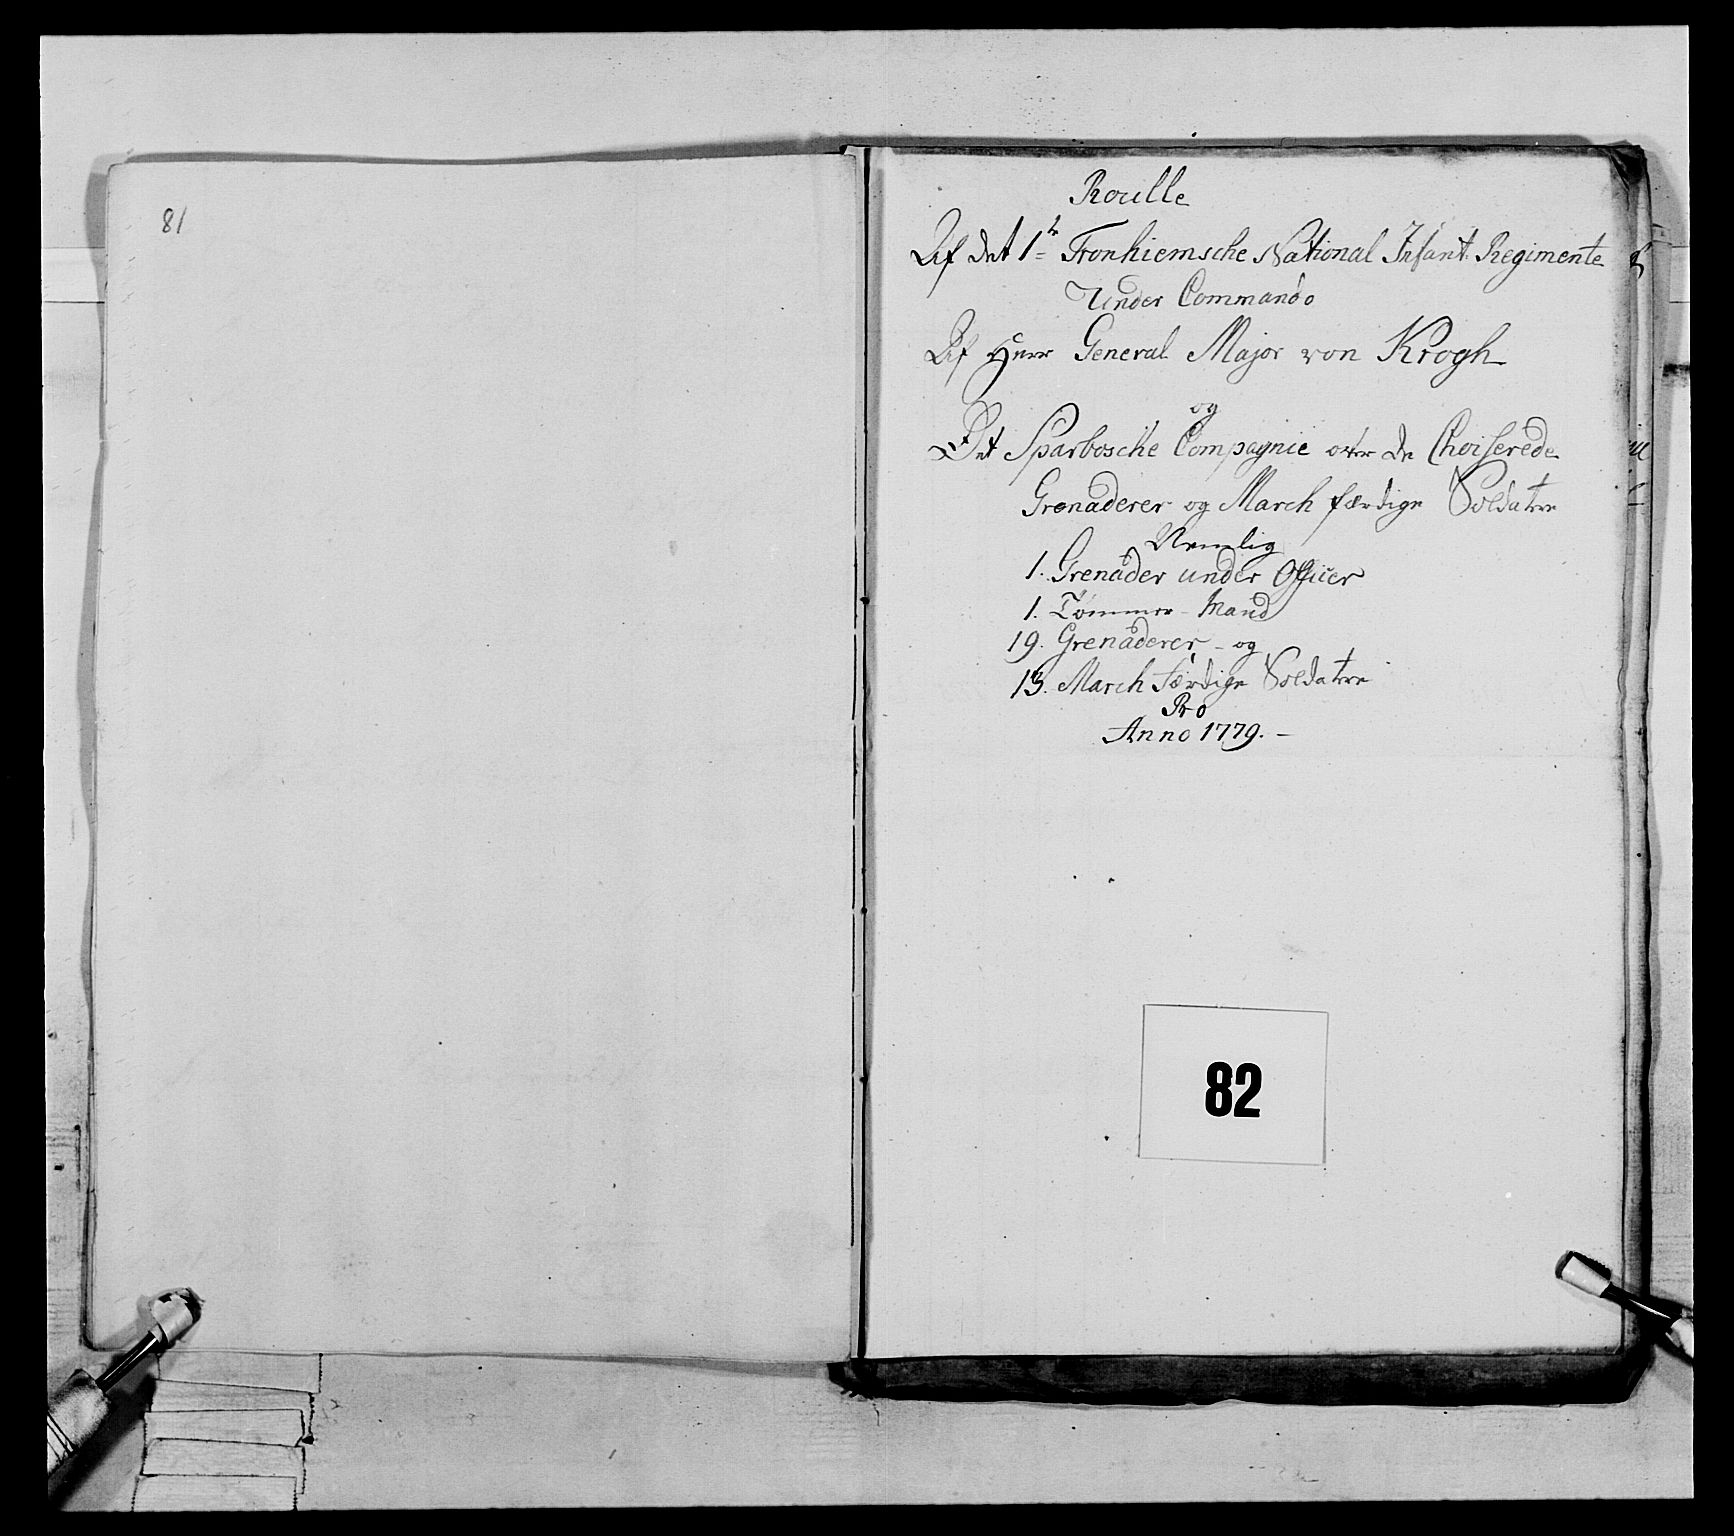 81
Roulle
Af det 1te Tronhiemsche National Infant. Regimente
Under Commando
Af Herr General Major von Krogh
og
Det Sparbosche Compagnie over de Choiserede
Grenaderer og March færdige Soldater
Nemlig
1. Grenader under Officer
1. Tømmer-Mand
19. Grenaderer - og
13. March færdige Soldater
Pro
Anno 1779. -
82